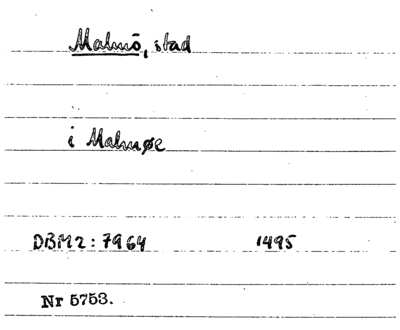 Malmö, stad
i Malmøe
DBM2: 7964 1495
Nr 5753.